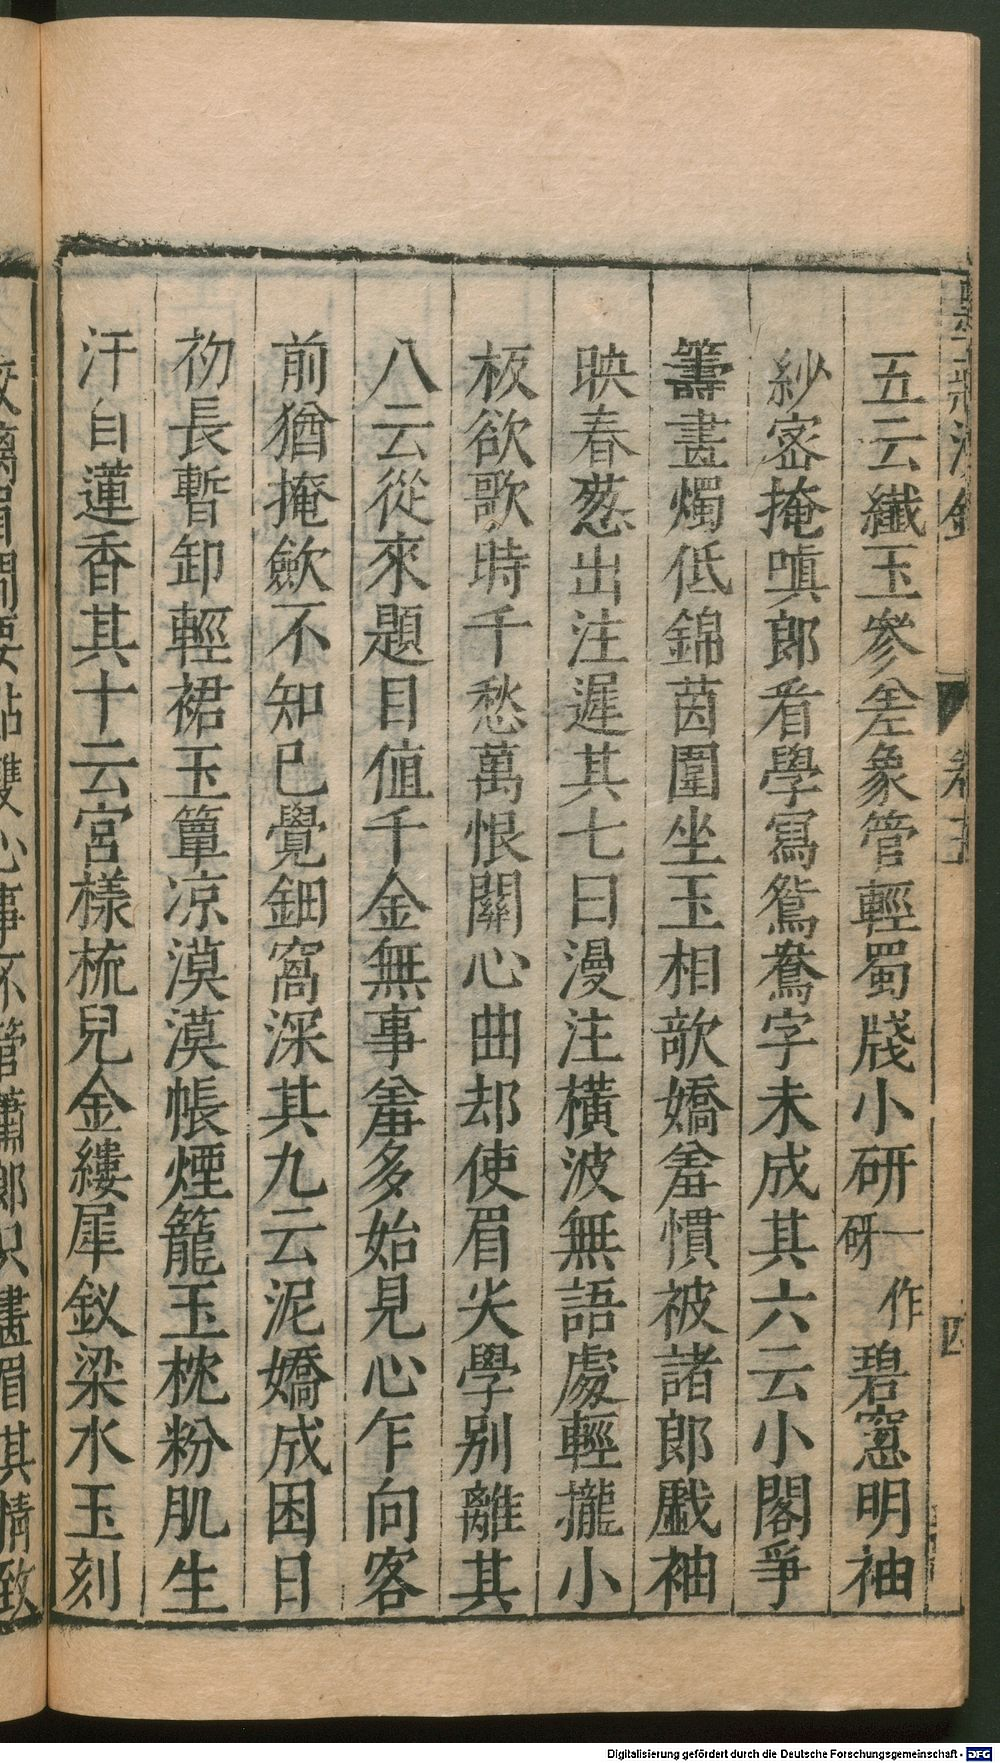 五云纖玉參差象管輕蜀牋小研一作砑碧窻明袖
紗宻掩嗔郎看學寫鴛鴦字未成其六云小閣爭
籌畫燭低錦茵圍坐玉相欹嬌羞慣被諸郎戱袖
映春葱出注遲其七曰漫注橫波無語處輕攏小
板欲歌時千愁萬恨關心曲却使眉尖學别離其
八云從來題目值千金無事羞多始見心乍向客
前猶掩歛不知已覺鈿窩深其九云泥嬌成困日
初長暫卸輕裙玉簟凉漠漠帳煙籠玉枕粉肌生
汗白蓮香其十云宮樣梳兒金縷犀釵梁水玉刻
卷五
四
蕭郎只畫眉其情致
Digitalisierung gefördert durch die Deutsche Forschungsgemeinschaft - DFG